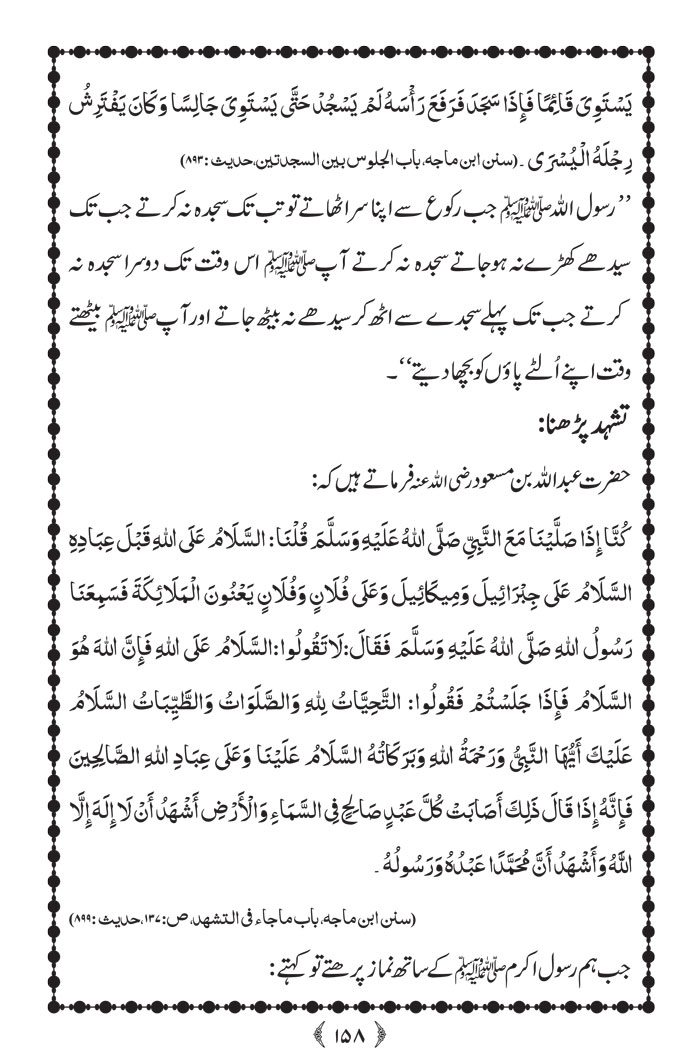 يَسْتَوِيَ قَائِمًا فَإِذَا سَجَدَ فَرَفَعَ رَأْسَهُ لَمْ يَسْجُدْ حَتَّى يَسْتَوِيَ جَالِسًا وَكَانَ يَفْتَرِشُ
رِجْلَهُ الْيُسْرَى ۔ (سنن ابن ماجہ، باب الجلوس بین السجدتین، حدیث: ۸۹۳)
’’رسول اللہ ﷺ جب رکوع سے اپنا سر اٹھاتے تو تب تک سجدہ نہ کرتے جب تک
سیدھے کھڑے نہ ہوجاتے سجدہ نہ کرتے آپ ﷺ اس وقت تک دوسرا سجدہ نہ
کرتے جب تک پہلے سجدے سے اٹھ کر سیدھے نہ بیٹھ جاتے اور آپ ﷺ بیٹھتے
وقت اپنے اُلٹے پاؤں کو بچھا دیتے‘‘۔
تشہد پڑھنا:
حضرت عبداللہ بن مسعود رضی اللہ عنہ فرماتے ہیں کہ:
كُنَّا إِذَا صَلَّيْنَا مَعَ النَّبِيِّ صَلَّى اللهُ عَلَيْهِ وَسَلَّمَ قُلْنَا: السَّلَامُ عَلَى اللهِ قَبْلَ عِبَادِهِ
السَّلَامُ عَلَى جِبْرَائِيلَ وَمِيكَائِيلَ وَعَلَى فُلَانٍ وَفُلَانٍ يَعْنُونَ الْمَلَائِكَةَ فَسَمِعَنَا
رَسُولُ اللهِ صَلَّى اللهُ عَلَيْهِ وَسَلَّمَ فَقَالَ: لَا تَقُولُوا: السَّلَامُ عَلَى اللهِ فَإِنَّ اللهَ هُوَ
السَّلَامُ فَإِذَا جَلَسْتُمْ فَقُولُوا: التَّحِيَّاتُ لِلهِ وَالصَّلَوَاتُ وَالطَّيِّبَاتُ السَّلَامُ
عَلَيْكَ أَيُّهَا النَّبِيُّ وَرَحْمَةُ اللهِ وَبَرَكَاتُهُ السَّلَامُ عَلَيْنَا وَعَلَى عِبَادِ اللهِ الصَّالِحِينَ
فَإِنَّهُ إِذَا قَالَ ذَلِكَ أَصَابَتْ كُلَّ عَبْدٍ صَالِحٍ فِي السَّمَاءِ وَالْأَرْضِ أَشْهَدُ أَنْ لَا إِلَهَ إِلَّا
اللهُ وَأَشْهَدُ أَنَّ مُحَمَّدًا عَبْدُهُ وَرَسُولُهُ۔
(سنن ابن ماجہ، باب ماجاء فی التشہد، ص: ۱۳۷، حدیث: ۸۹۹)
جب ہم رسول اکرم ﷺ کے ساتھ نماز پرھتے تو کہتے:
۱۵۸